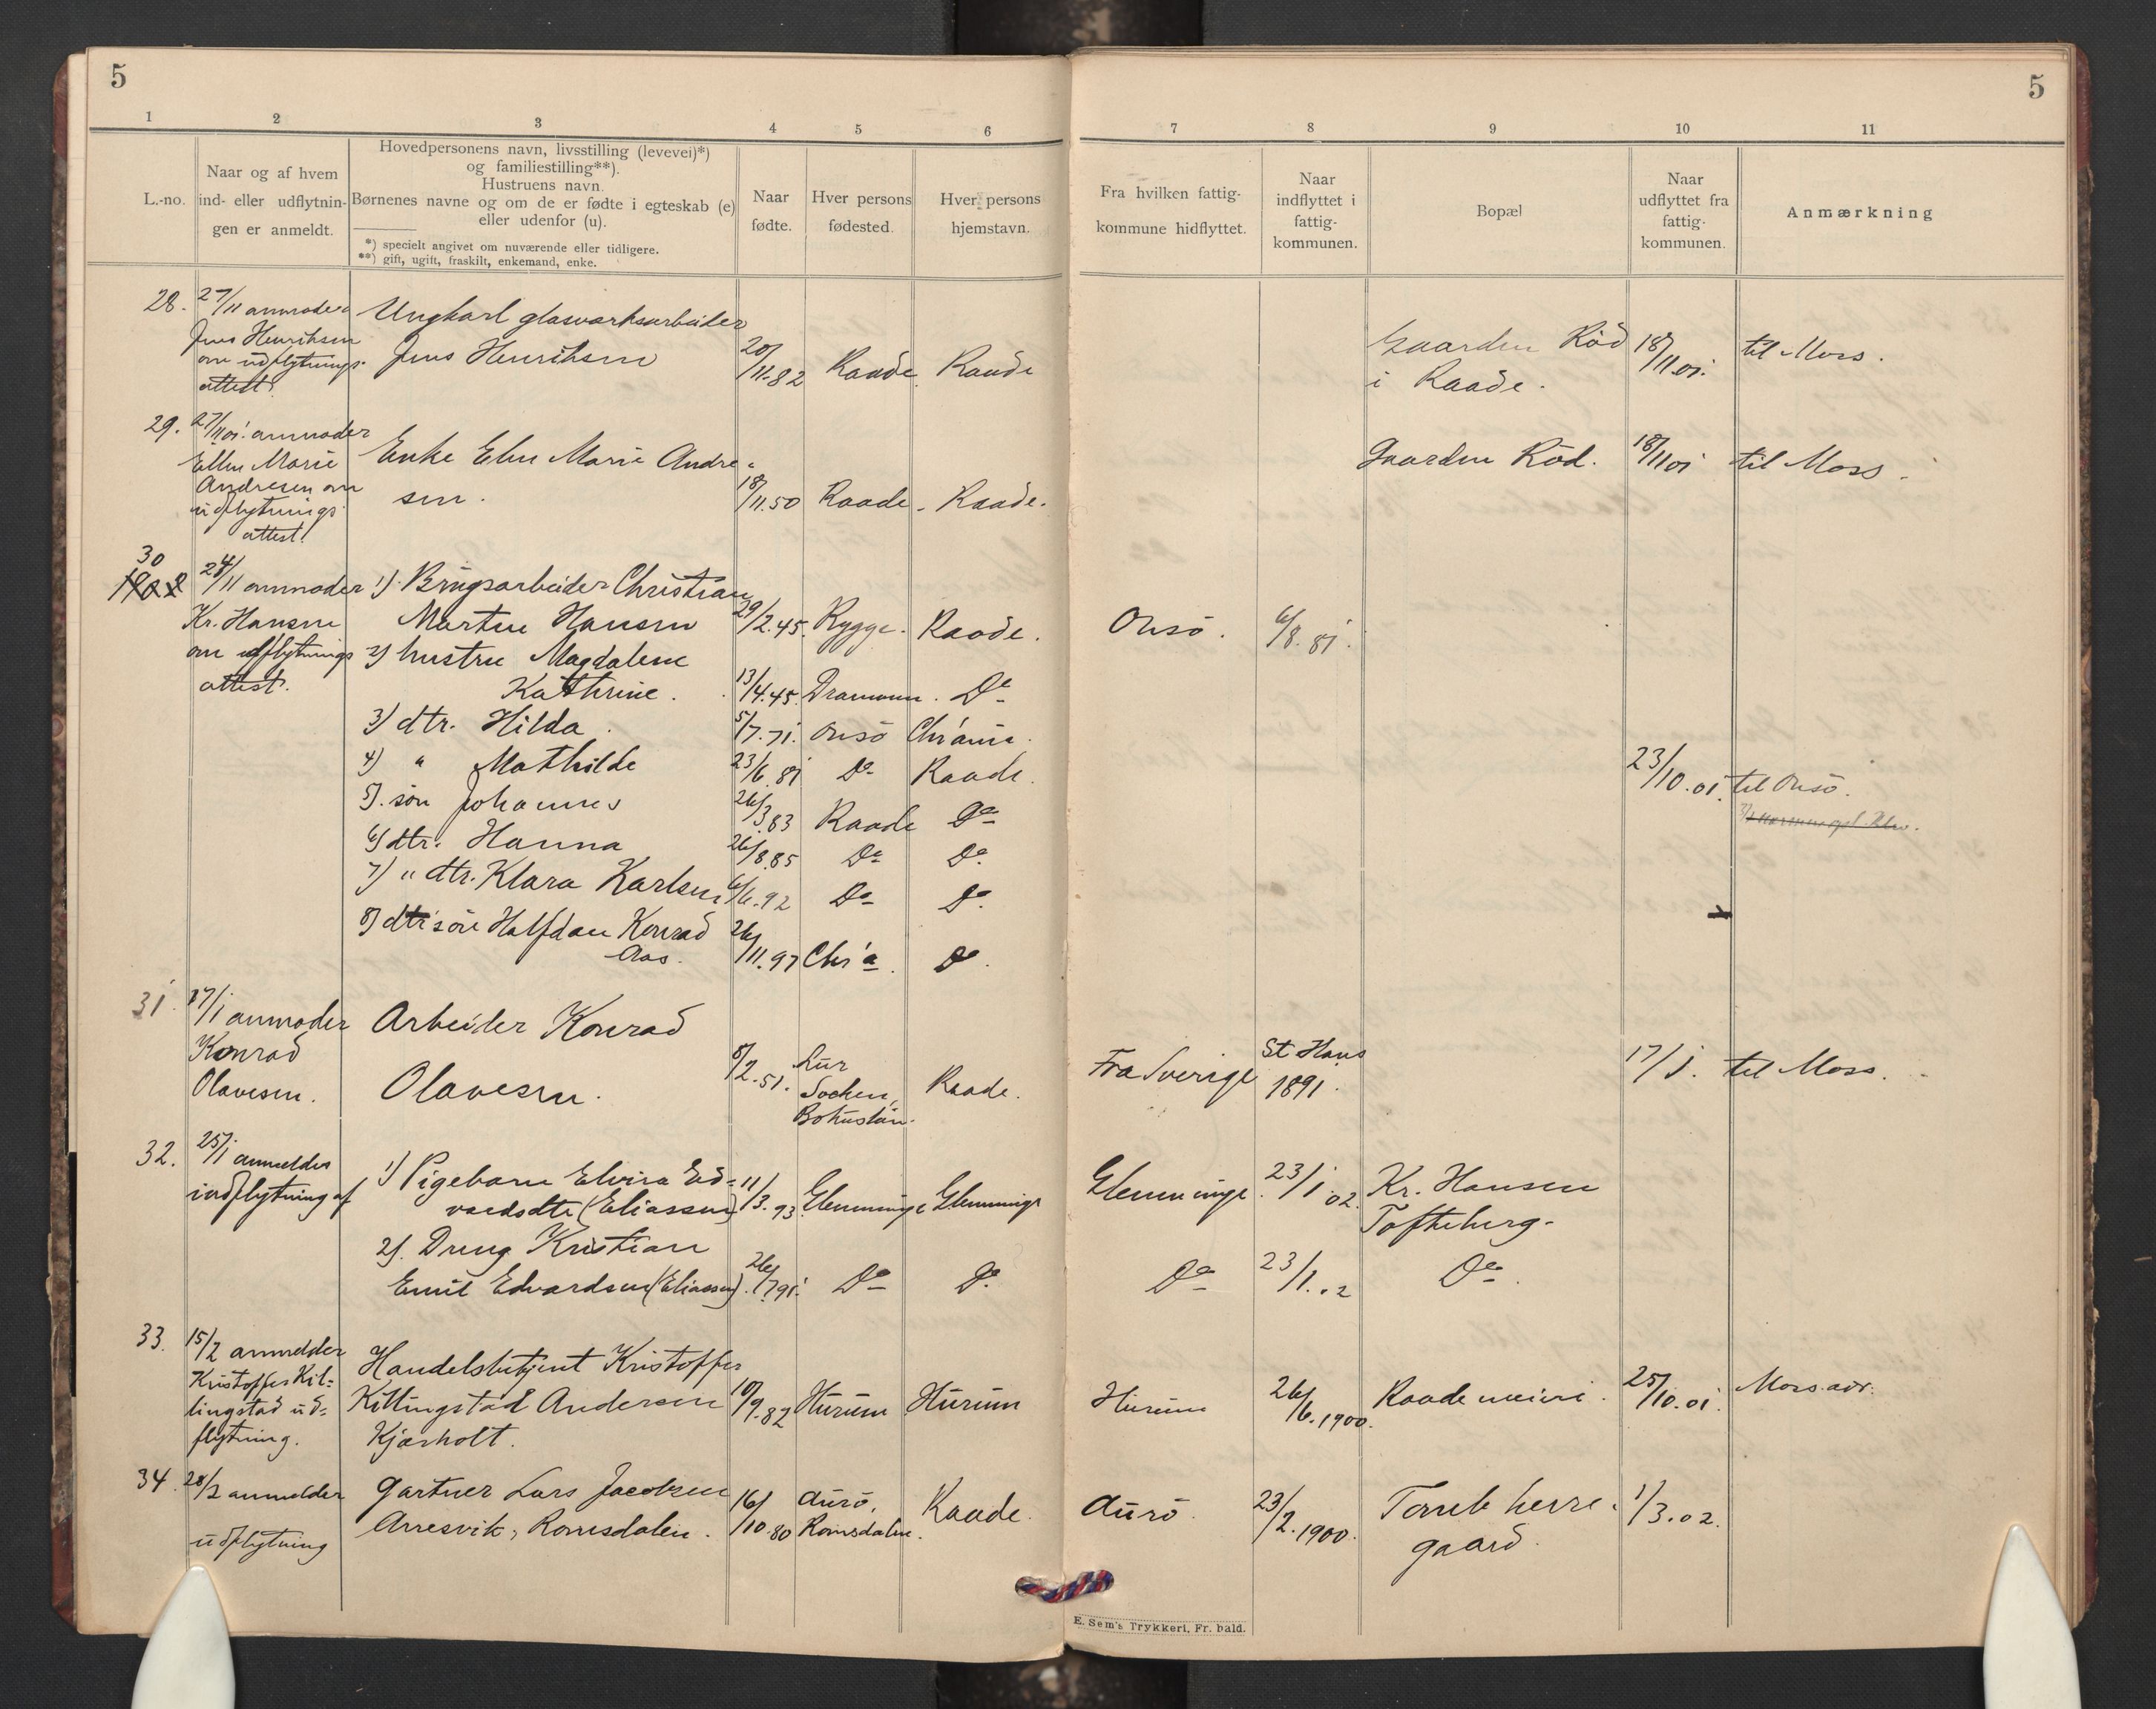 5
5
1
2
3
4
5
6
7
8
9
10
11
L.-no.
Naar og af hvem
ind- eller udflytnin-
gen er anmeldt.
Hovedpersonens navn, livsstilling (levevei)*)
og familiestilling**).
Hustruens navn.
Børnenes navne og om de er fødte i egteskab (e)
eller udenfor (u).
*) specielt angivet om nuværende eller tidligere.
**) gift, ugift, fraskilt, enkemand, enke.
Naar
fødte.
Hver persons
fødested.
Hver persons
hjemstavn.
Fra hvilken fattig-
kommune hidflyttet.
Naar
indflyttet i
fattig-
kommunen.
Bopæl
Naar
udflyttet fra
fattig-
kommunen.
Anmærkning
28.
27/11 anmoder
Jens Henriksen
om udflytnings-
attest.
Ungkarl glasværksarbeider
Jens Henriksen
20/11.82
Raade
Raade
Gaarden Röd
i Raade.
18/11.01.
til Moss.
29.
27/11 01. anmoder
Ellen Marie
Andresen om
udflytnings
attest.
Enke Elen Marie Andre-
sen.
18/11.50
Raade.
Raade.
Gaarden Röd.
18/11 01
til Moss.
30
1902
24/11 anmoder
Kr. Hansen
om udflytnings
attest.
1). Brugsarbeider Christian
Martin Hansen
29/2.45.
Rygge.
Raade.
Onsö.
6/8.81.
2) hustru Magdalene
Kathrine.
13/4.45.
Drammen.
Do
3) dtr. Hilda.
5/7.71.
Onsö
Chr.ania.
4) " Mathilde
23/6.81
Do
Raade.
23/10.01.
til Onsö.
5). sön Johannes
26/3.83
Raade
Do
6) dtr. Hanna
26/8.85
Do
Do
7) " dtr. Klara Karlsen
6/6.92
Do
Do
8) dtr sön Halfdan Konrad
Aas.
26/11.97
Chr.a.
Do.
31.
17/1 anmoder
Konrad
Olavesen.
Arbeider Konrad
Olavesen.
8/2.51.
Lur
Socken,
Bohuslän.
Raade.
Fra Sverige
St Hans
1891.
17/1.
til Moss.
32.
25/1 anmeldes
indflytning af
1) Pigebarn Elvira Ed-
vardsdtr (Eliassen)
11/3.93
Glemminge
Glemminge
Glemminge.
23/1.02.
Kr. Hansen
Tofteberg.
2). Dreng Kristian
Emil Edvardsen (Eliassen).
26/7 91.
Do
Do
Do
23/1.02
Do.
33.
15/2 anmelder
Kristoffer Kil-
lingstad ud-
flytning.
Handelsbetjent Kristoffer
Killingstad Andersen
Kjærholt.
10/9.82
Hurum
Hurum
Hurum
26/6.1900.
Raade meieri.
25/10.01.
Moss adr.
34.
28/2 anmelder
udflytning
Gartner Lars Jacobsen
Arresvik, Romsdalen.
16/10.80
Aurö,
Romsdalen.
Raade.
Aurö.
23/2.1900.
Tomb herre-
gaard.
1/3.02.
E. Sem's Trykkeri, Fr. hald.